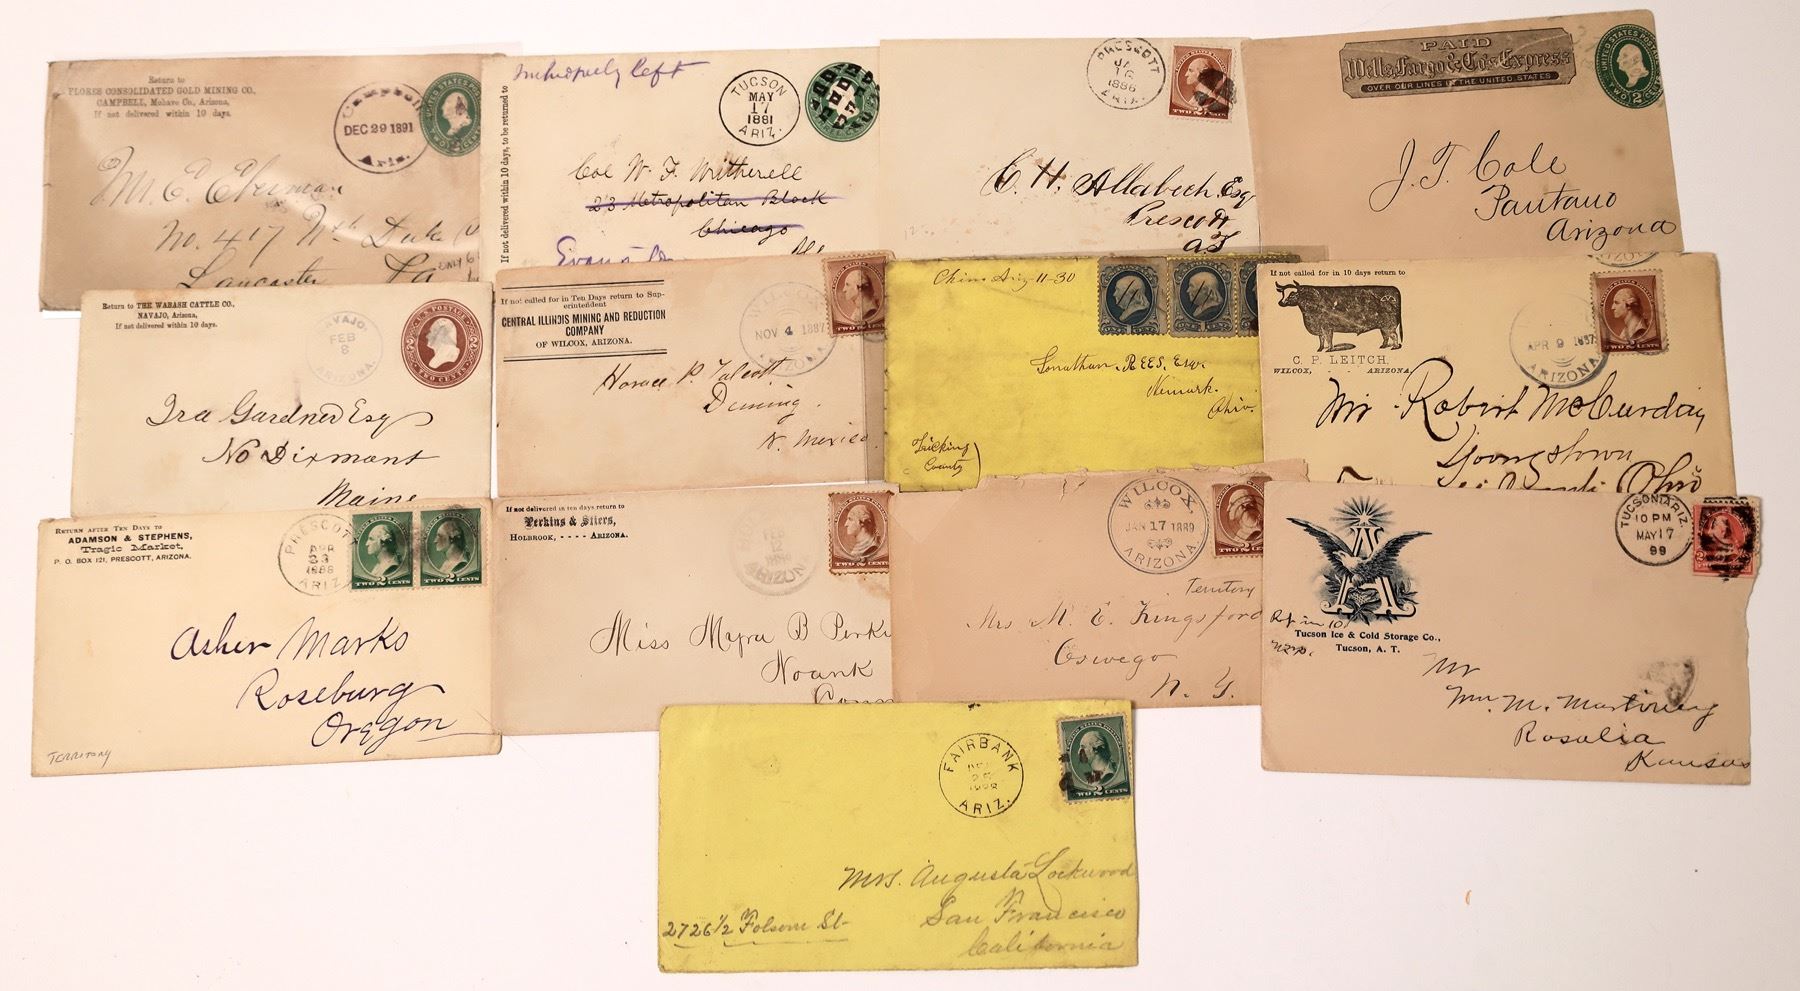 Return to
FLORES CONSOLIDATED GOLD MINING CO.,
CAMPBELL, Mohave Co., Arizona,
If not delivered within 10 days.
DEC 29 1891
Ariz.
TWO CENTS
Mr. E. Eberman
No. 417 Nth Duke
Lancaster
Pa
ONLY 6
left
If not delivered within 10 days, to be returned to
TUCSON
MAY
17
1881
ARIZ.
Col W. F. Witherell
23 Metropolitan Block
Chicago
PRESCOTT
JA
16
1886
ARIZ.
C. H. Allabech, Esq
Prescott
A.T
PAID
Wells, Fargo & Co's Express
OVER OUR LINES IN THE UNITED STATES
UNITED STATES POSTAGE
2
TWO CENTS
J. T. Cole
Pantano
Arizona
Return to THE WABASH CATTLE CO.,
NAVAJO, Arizona,
If not delivered within 10 days.
NAVAJO,
FEB
8
ARIZONA.
U.S. POSTAGE
TWO CENTS
Ira Gardner Esq
No Dixmont
Maine
If not called for in Ten Days return to Sup-
erintendent
CENTRAL ILLINOIS MINING AND REDUCTION
COMPANY
OF WILCOX, ARIZONA.
NOV 4 1887
ARIZONA.
TWO CENTS
Horace P. Talcott
Deming.
N. Mexico
11-30
Jonathan REES, Esq.
Newark.
Ohio.
Licking
County
If not called for in 10 days return to
C. P. LEITCH,
WILCOX, - - ARIZONA.
APR 9 1887
ARIZONA
Mr Robert McCurday
Youngstown
Ohio
RETURN AFTER TEN DAYS TO
ADAMSON & STEPHENS,
Tragic Market,
P. O. BOX 121, PRESCOTT, ARIZONA.
PRESCOTT
APR
23
1888
ARIZ
TWO 2 CENTS
TWO 2 CENTS
Asher Marks
Roseburg
Oregon
TERRITORY
If not delivered in ten days return to
Perkins & Stiers,
HOLBROOK, - - - - ARIZONA.
FEB
12
ARIZONA
TWO 2 CENTS
Miss Mayra B Perki
Noank
Conn
WILCOX,
JAN 17 1889
ARIZONA.
TWO 2 CENTS
Territory
Mrs M. E. Kingsford
Oswego
N. Y.
A
Tucson Ice & Cold Storage Co.,
Tucson, A. T.
TUCSON, ARIZ.
10 PM
MAY 17
99
Mr
Wm. M.
Rosalia
Kansas
FAIRBANK
ARIZ.
TWO 2 CENTS
Mrs. Augusta Lockwood
2726 1/2 Folsom St-
San Francisco
California